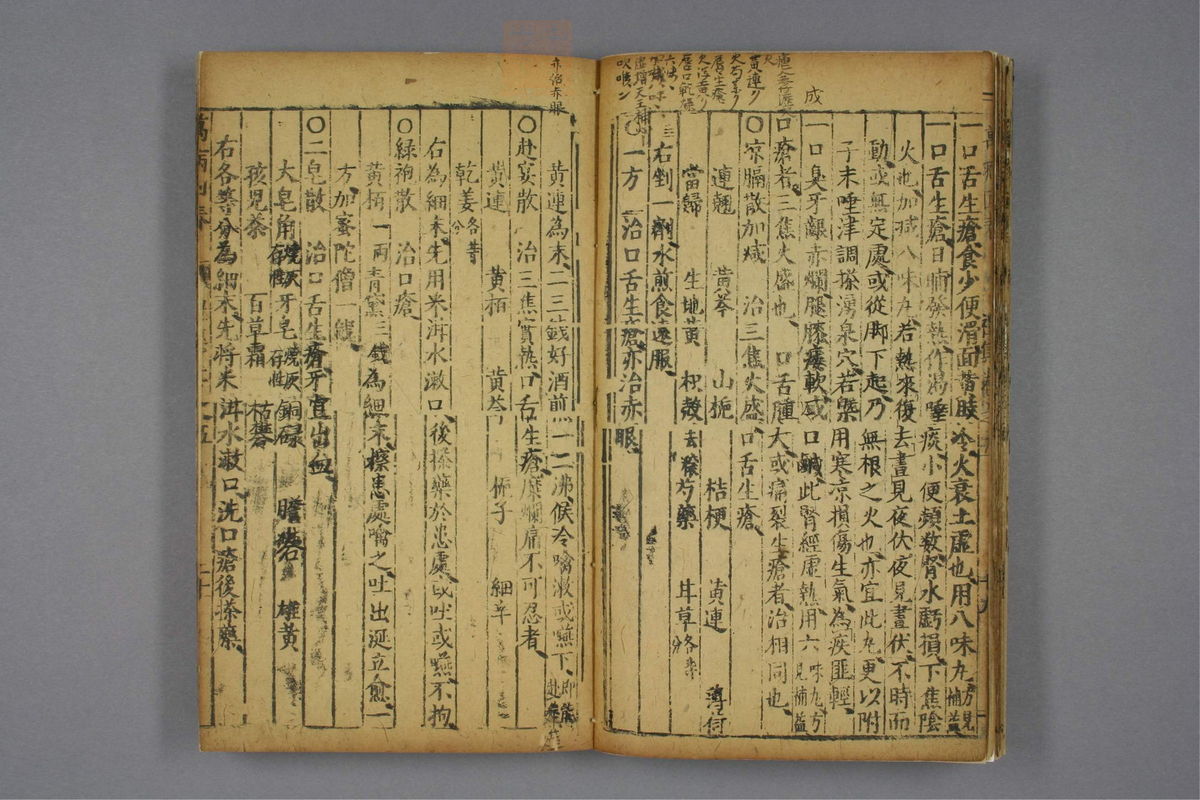 成
一口舌生瘡食少便滑面黃肢冷火衰土虛也用八味丸方見補益
一口舌生瘡日晡發熱作渴唾痰小便頻數腎水虧損下焦陰
火也加減八味丸若熱來復去晝見夜伏夜見晝伏不時而
動或無定處或從脚下起乃無根之火也亦宜此丸更以附
子末唾津調搽湧泉穴若槩用寒涼損傷生氣為疾匪輕
一口臭牙齦赤爛腿膝痿軟或口鹹此腎經虛熱用六味丸方見補益
口瘡者三焦火盛也 口舌腫大或痛裂生瘡者治相同也
○凉膈散加减 治三焦火盛口舌生瘡
連翹 黃芩 山梔 桔梗 黃連 薄荷
當歸 生地黃 枳殼 去穰芍藥 甘草各等分
右剉一劑水煎食遠服
○一方 治口舌生瘡亦治赤眼
亦治赤眼
黃連為末二三錢好酒煎一二沸候冷噙漱或嚥下即愈
○赴宴散 治三焦實熱口舌生瘡糜爛痛不可忍者
黃連 黃栢 黃芩 梔子 細辛
乾姜各等分
右為細末先用米泔水漱口後搽藥於患處或吐或嚥不拘
○綠袍散 治口瘡
黃栢一兩青黛三錢為細末搽患處噙之吐出涎立愈一
方加蜜陀僧一錢
○二皂散 治口舌生瘡牙宣出血
大皂角燒灰存性牙皂燒灰存性銅碌 膽礬 雄黃
孩兒茶 百草霜 枯礬
右各等分為細末先將米泔水漱口洗口瘡後搽藥